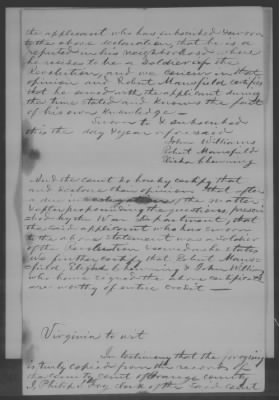 the applicant who has subscribed & sworn
to the above declaration, that he is
reputed in his neighborhood where
he resides to be a Soldier of the
Revolution, and we concur in that
opinion and Robert Mansfield certifies
that he served with the applicant during
the time stated and knows the fact
of his own knowledge
Sworn to & subscribed
this the day & year aforesaid
John Williams
Robert Mansfield
And the court do hereby certify that
and declare their opinion that after
a due investigation of the matter
& after propounding the questions prescri
bed by the War Department, that
the said applicant who has sworn
to the above statement was a soldier
of the Revolution & served as he states
we further certify that Robert Mans-
field, & John Williams
who have signed the above certificate
are worthy of entire credit
Virginia to wit
In testimony that the foregoing
is truly copied from the records of
the County Court of Orange County
I, Philip S. Fry clerk of the said Court